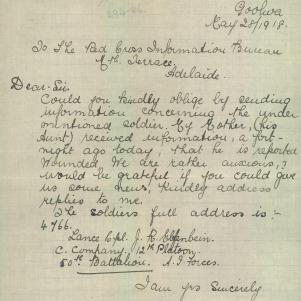 Goolwa
May 28/1918.
To The Red Cross Information Bureau
Nth. Terrace,
Adelaide.
Dear Sir
Could you kindly oblige by sending
information concerning the under
mentioned soldier. My Mother, (his
Aunt) received information, a fort-
night ago today, that he is reported
Wounded. We are rather anxious, &
would be grateful if you could give
us some news. Kindly address
replies to me.
The soldiers full address is :-
4766.
Lance Cpl. J. R. Elfenbein.
C. Company, 12th Platoon.
50th Battalion. A. I. Forces.
I am yrs Sincerely